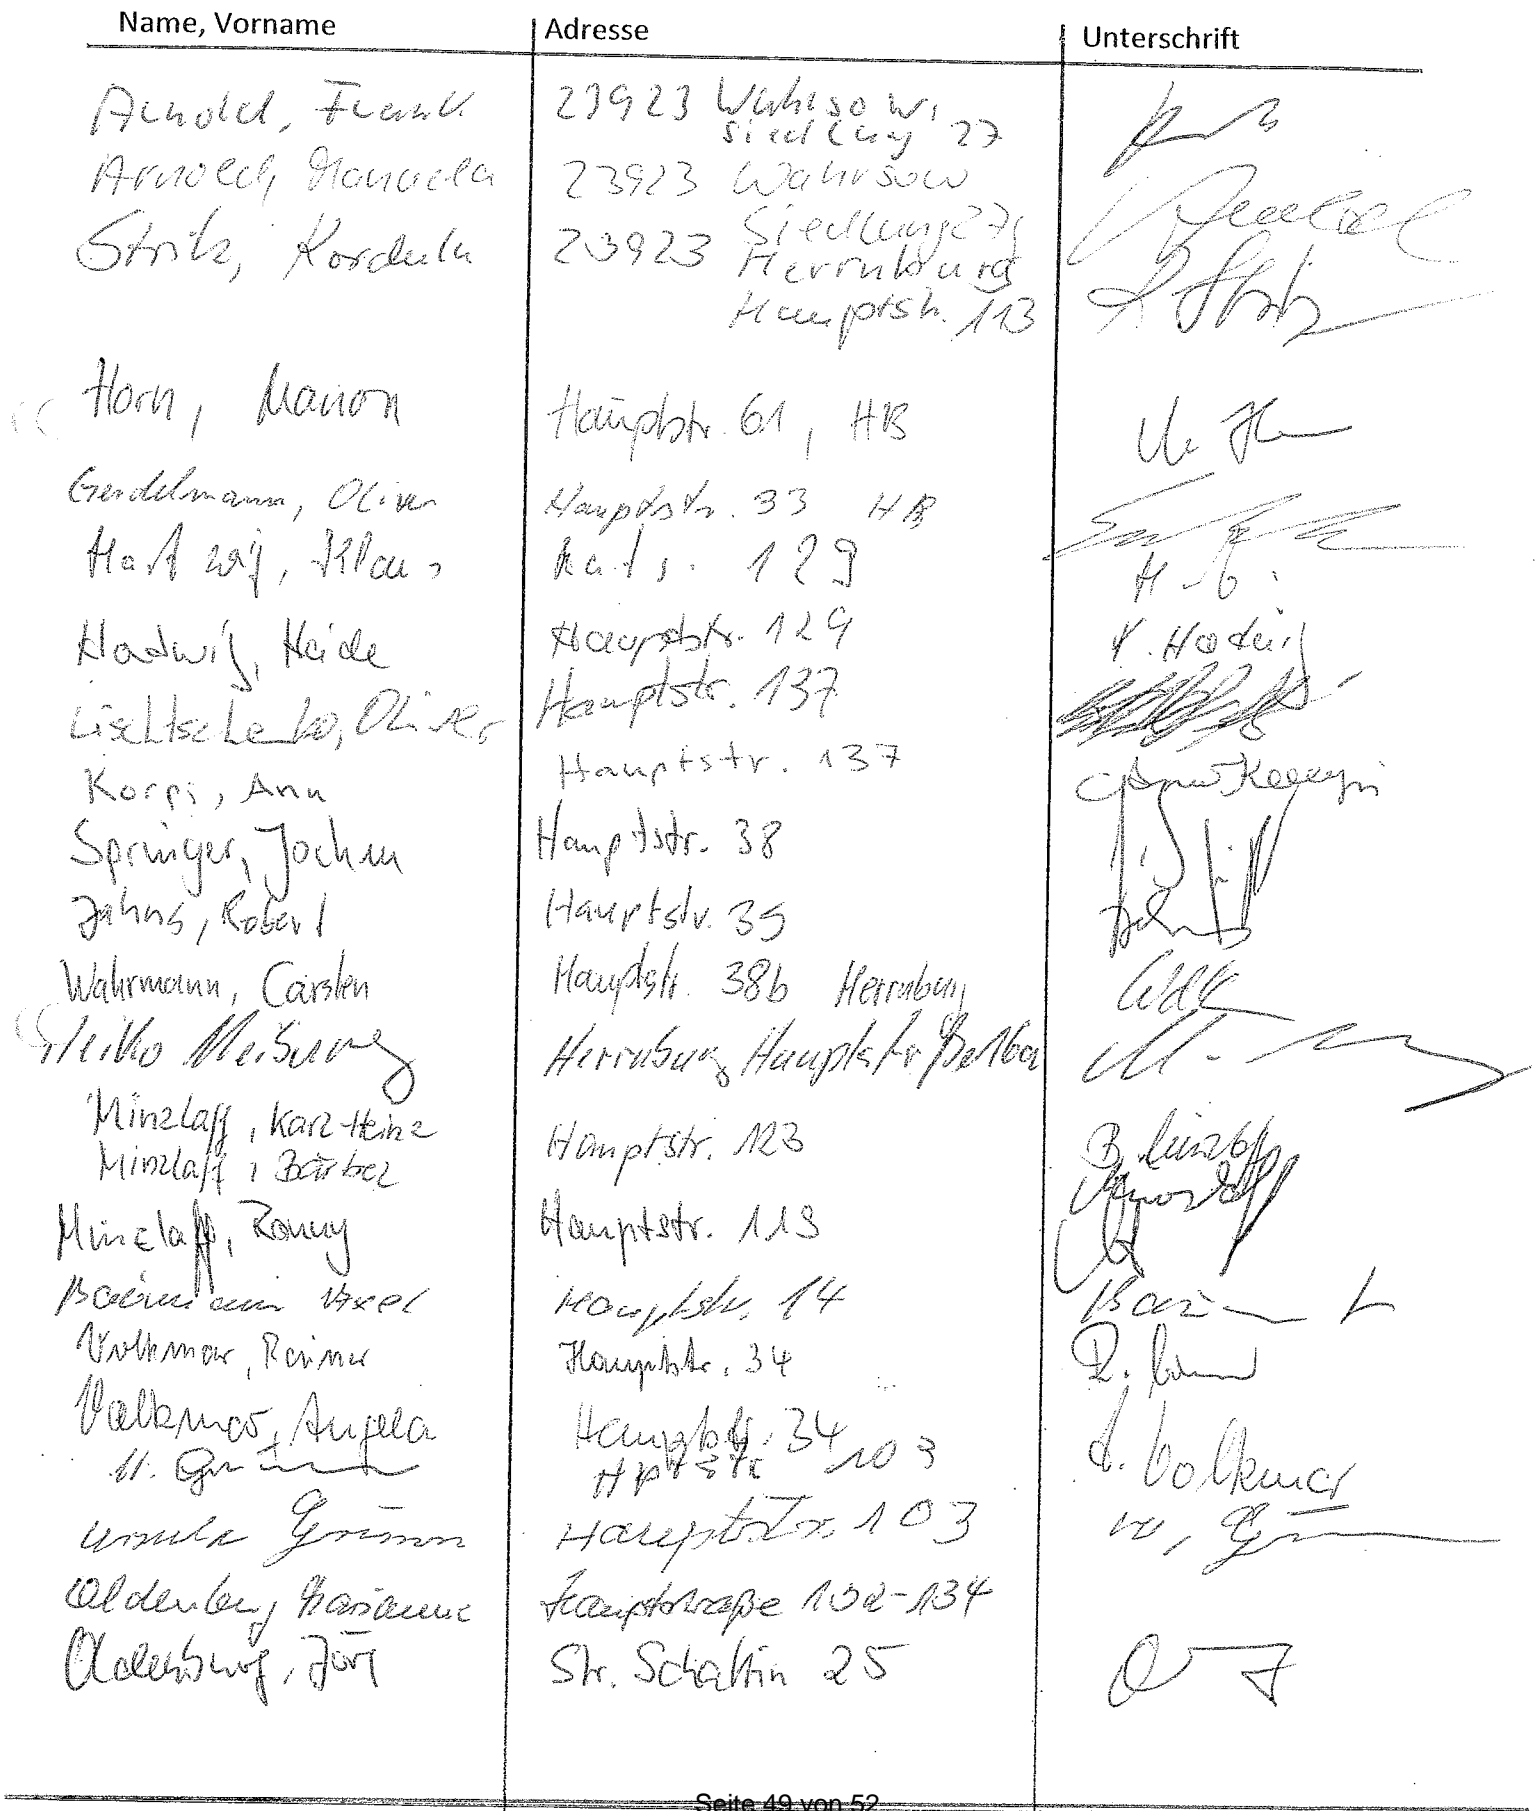 Name, Vorname Adresse Unterschrift
Arnold, Frank 23923 Wahrsow,
Siedlung 27
Arnold, Manuela 23923 Wahrsow
Siedlung 27
Stritz, Kordula 23923 Herrnburg
Hauptstr. 113
Horn, Marion Hauptstr. 61, HB
Gerdelmann, Oliver Hauptstr. 33 HB
Hartwig, Klaus 129
Hartwig, Heide Hauptstr. 129 H. Hartwig
Lischtschenko, Oliver Hauptstr. 137
Korpi, Anu Hauptstr. 137
Springer, Jochen Hauptstr. 38
Jahns, Robert Hauptstr. 39
Wahrmann, Carsten Hauptstr. 38b Herrnburg
Heiko Meiburg Herrnburg Hauptstraße 16a
Minzlaff, Karl-Heinz Hauptstr. 123 B. Minzlaff
Minzlaff, Bärbel
Minzlaff, Ronny Hauptstr. 113
Baermann Axel Hauptstr. 14
Volkmar, Rainer Hauptstr. 34
Volkmar, Angela Hauptstr. 34 A. Volkmar
Hptstr 103
Ursula Grimm Hauptstr. 103
Oldenburg Marianne Hauptstraße 132-134
Oldenburg, Jörg Str. Schattin 25
Seite 49 von 52